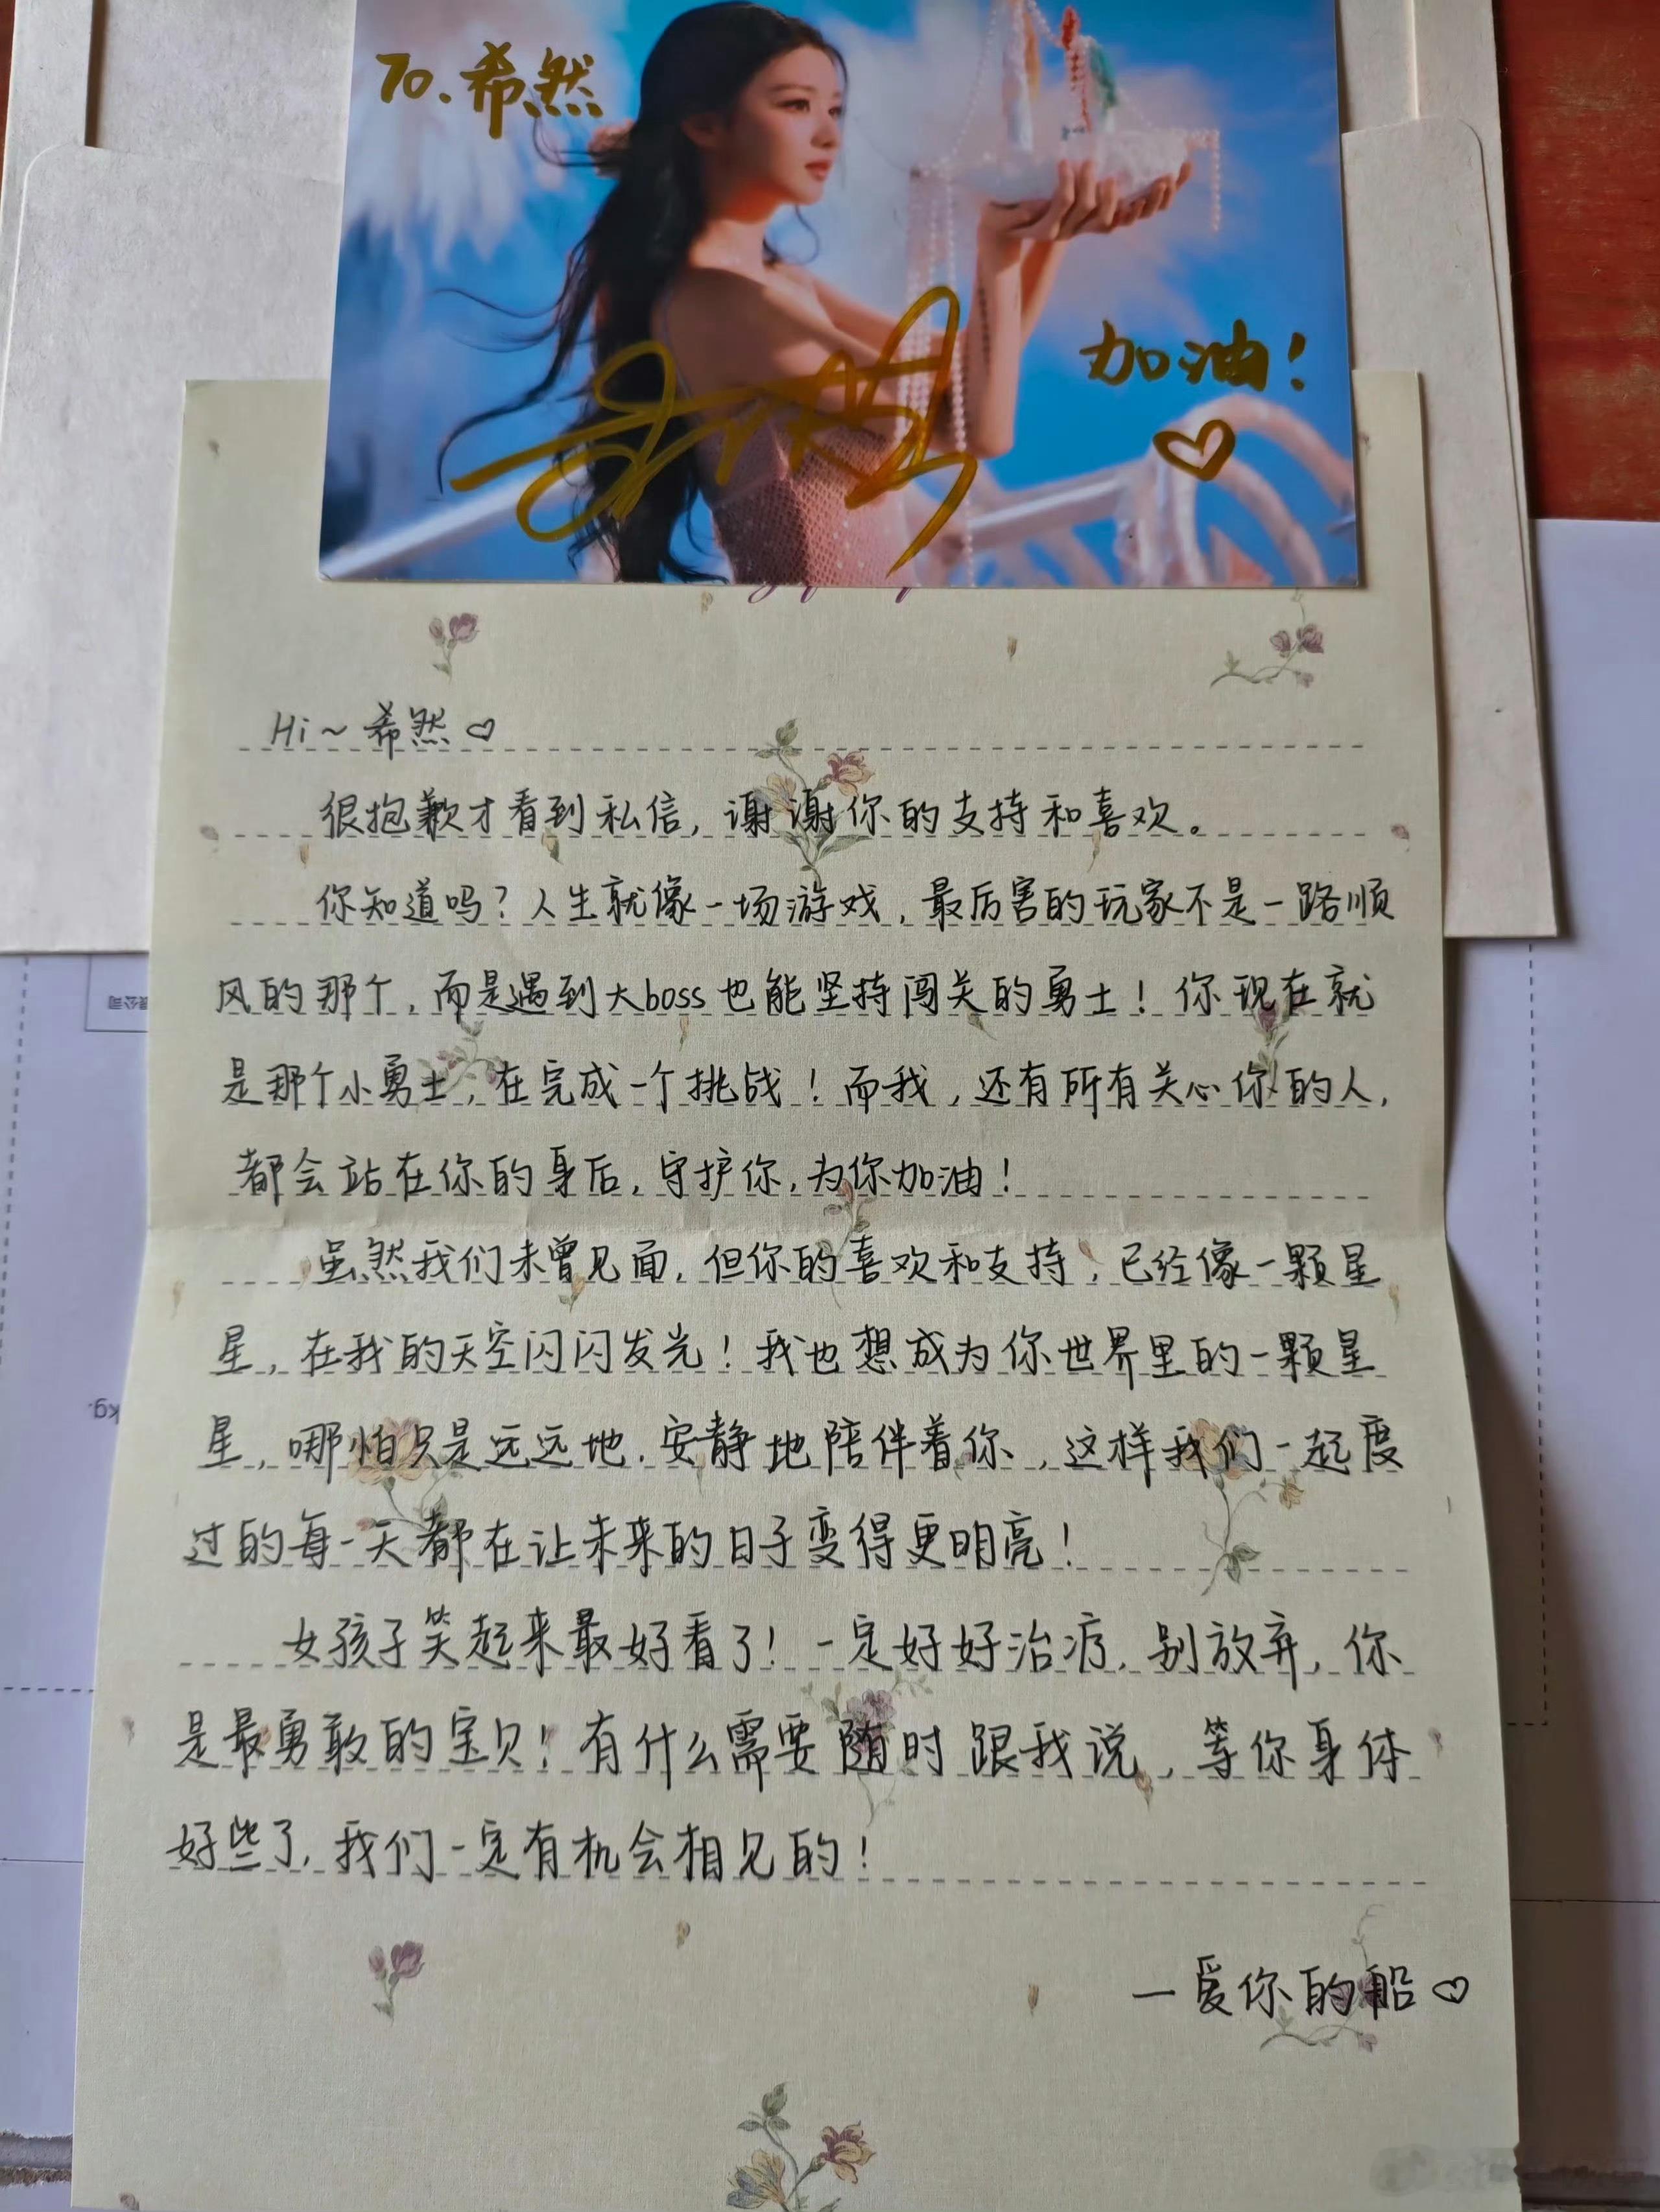 To.希然
加油！
Hi~希然
很抱歉才看到私信，谢谢你的支持和喜欢。
你知道吗？人生就像一场游戏，最厉害的玩家不是一路顺
风的那个，而是遇到大boss也能坚持闯关的勇士！你现在就
是那个小勇士，在完成一个挑战！而我，还有所有关心你的人，
都会站在你的身后，守护你，为你加油！
虽然我们未曾见面，但你的喜欢和支持，已经像一颗星
星，在我的天空闪闪发光！我也想成为你世界里的一颗星
星，哪怕只是远远地，安静地陪伴着你，这样我们一起度
过的每一天都在让未来的日子变得更明亮！
女孩子笑起来最好看了！一定好好治疗，别放弃，你
是最勇敢的宝贝！有什么需要随时跟我说，等你身体
好些了，我们一定有机会相见的！
一爱你的船
kg.